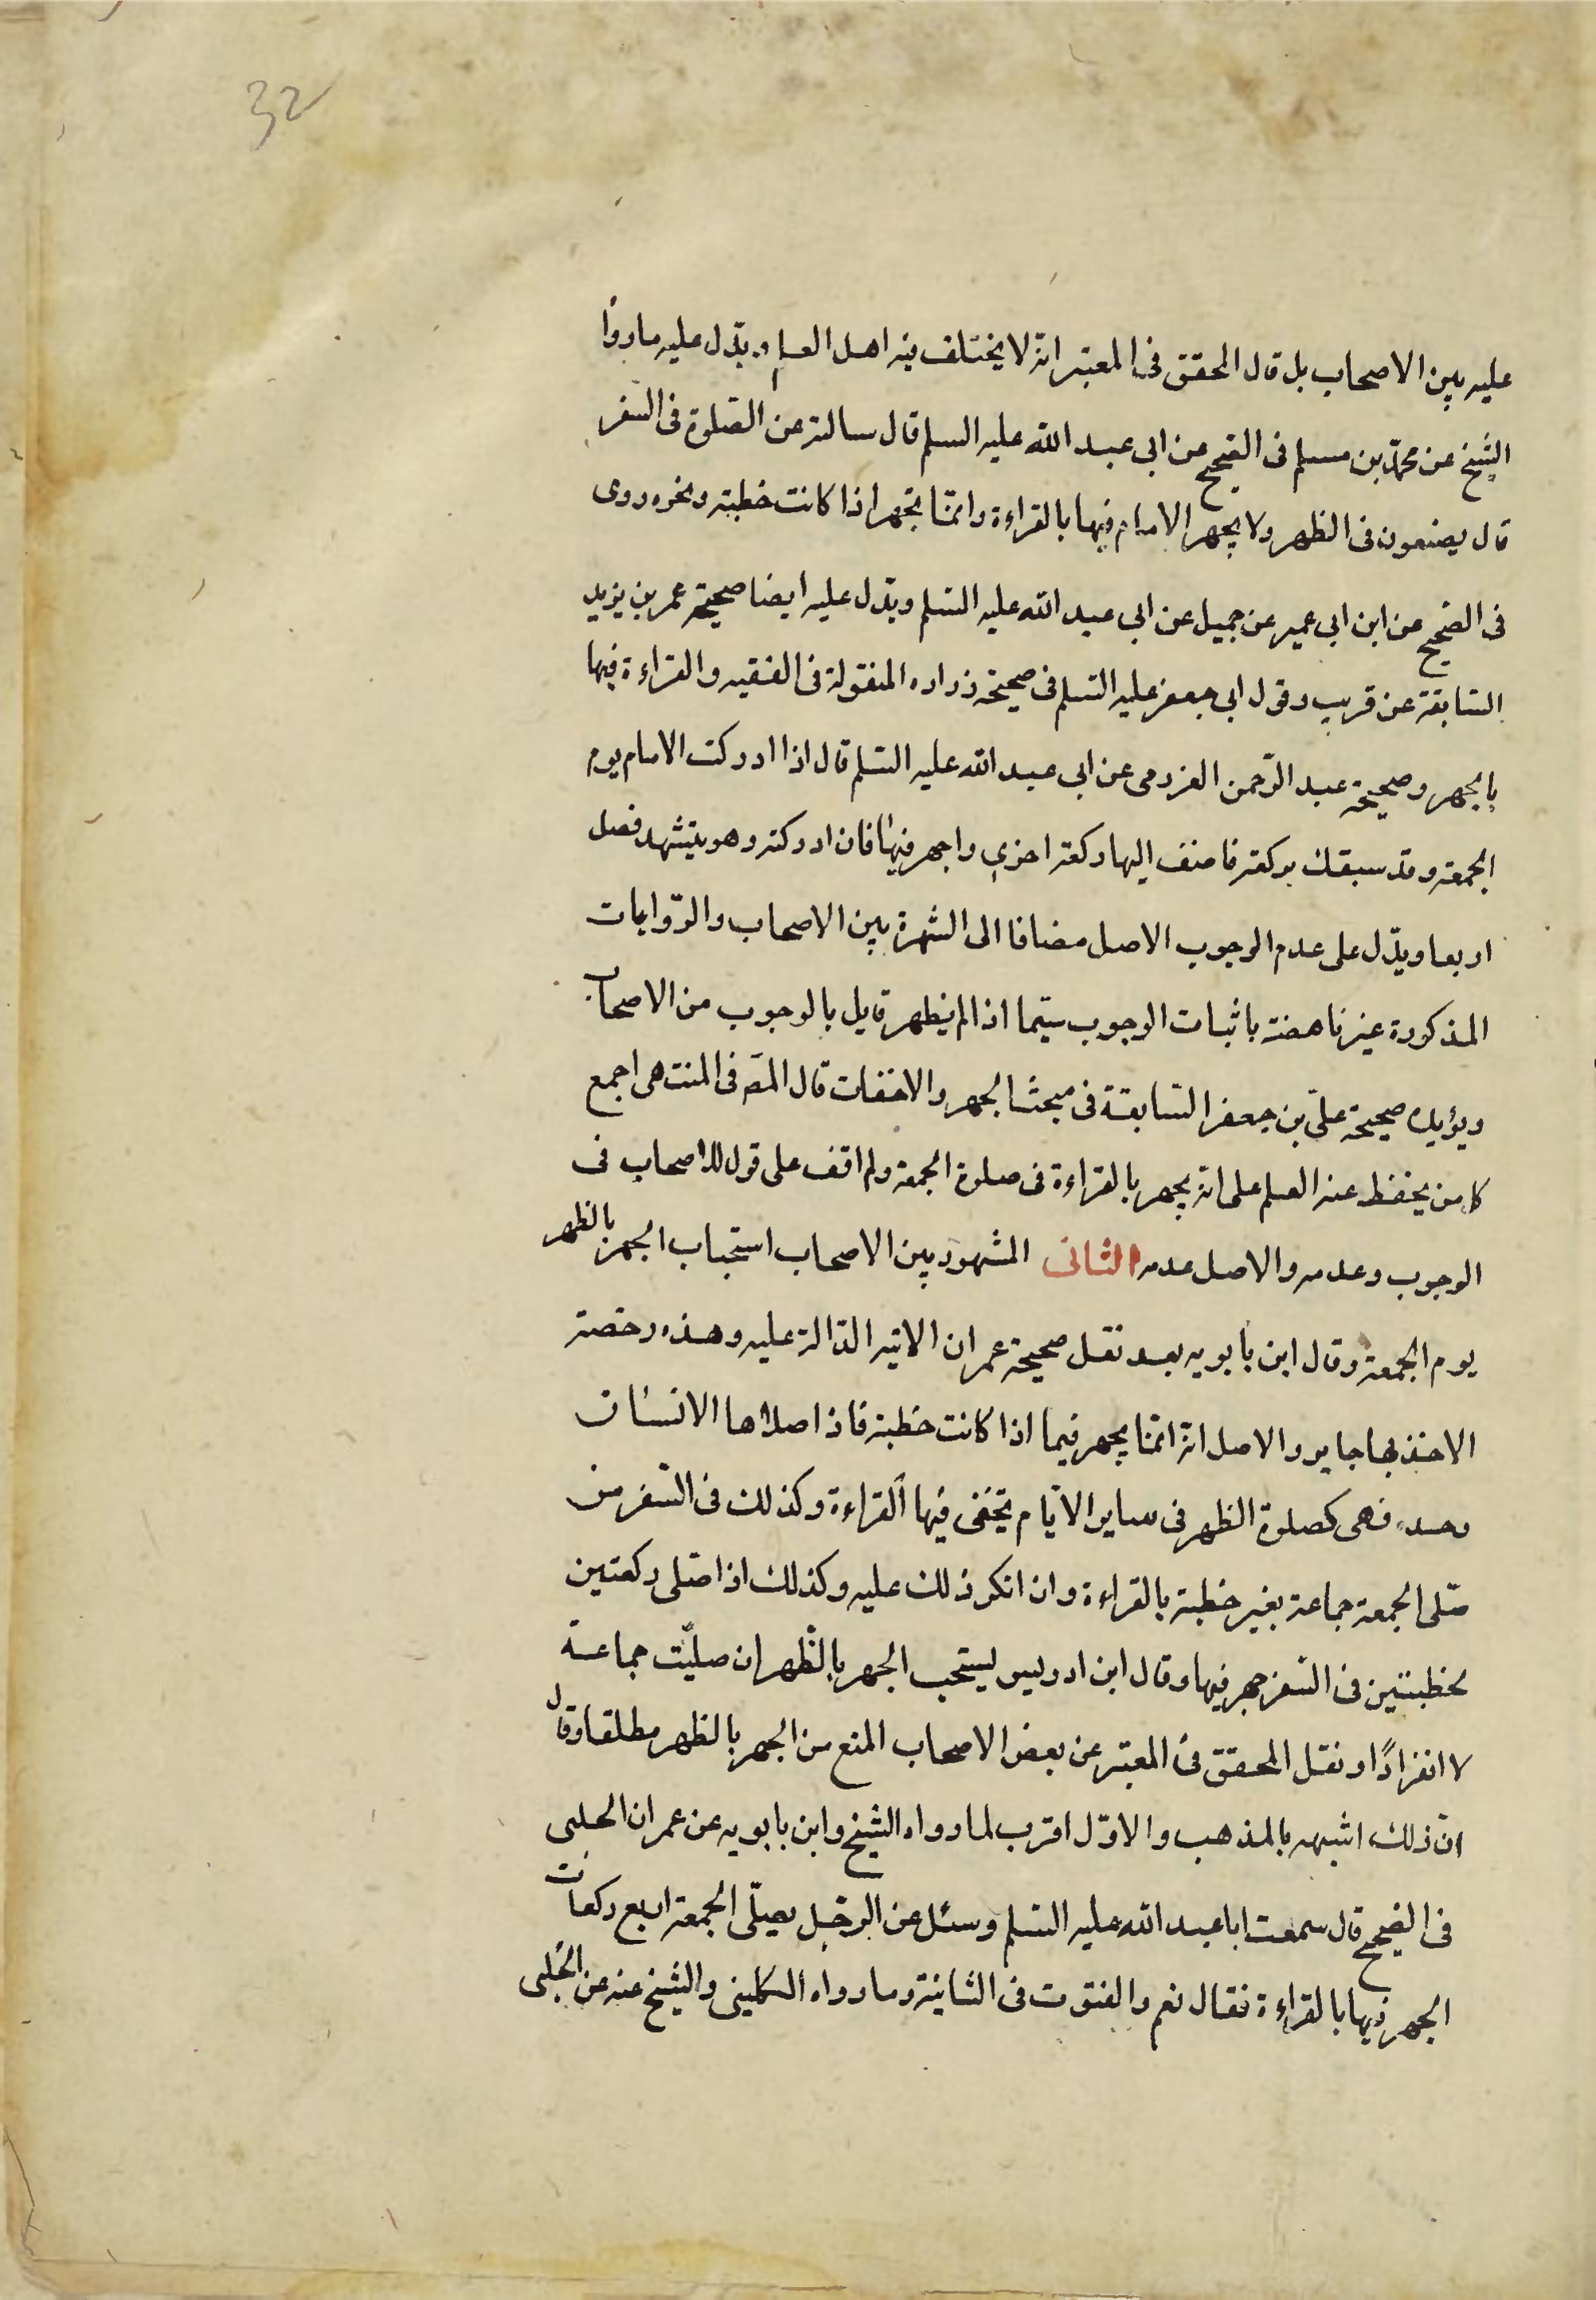 32
عليه بين الاصحاب بل قال المحقق فى المعتبر انه لا يختلف فيه اهل العلم ويدّل عليه ما روا
الشيخ عن محمّد بن مسلم فى الصّحيح عن ابى عبد الله عليه السلم قال سالته عن الصّلوة فى السّفر
قال يصنعون فى الظهر ولا يجهر الامام فيها بالقراءة وانّما تجهر اذا كانت خطبة ونحوه روى
فى الصّحيح عن ابن ابى عمير عن جميل عن ابى عبد الله عليه السّلم ويدّل عليه ايضا صحيحة عمر بن يزيد
السّابقة عن قريب وقول ابى جعفر عليه السّلم فى صحيحة زراره المنقولة فى الفقيه والقراءة فيها
بالجهر وصحيحة عبد الرّحمن العزرمى عن ابى عبد الله عليه السّلم قال اذا ادركت الامام يوم
الجمعة وقد سبقك بركعة فاضف اليها ركعة اخرى واجهر فيها فان ادركته وهو يتشهد فصل
اربعا ويدّل على عدم الوجوب الاصل مضافا الى الشهرة بين الاصحاب والرّوايات
المذكورة غير ناهضة باثبات الوجوب سيّما اذا لم يظهر قايل بالوجوب من الاصحاب
ويؤيده صحيحة علىّ بن جعفر السّابقة فى مبحث الجهر والاخفات قال المصّ فى المنتهى اجمع
كل من يحفظ عنه العلم على انه يجهر بالقراءة فى صلوة الجمعة ولم اقف على قول للاصحاب فى
الوجوب وعدمه والاصل عدمه الثانى المشهور بين الاصحاب استحباب الجهر بالظهر
يوم الجمعة وقال ابن بابويه بعد نقل صحيحة عمران الاتية الدّالة عليه وهذه رخصة
الاخذ بها جايز والاصل انه انّما يجهر فيما اذا كانت خطبة فاذا صلاها الانسان
وحده فهى كصلوة الظهر فى ساير الايّام يخفى فيها القراءة وكذلك فى السّفر من
صّلى الجمعة جماعة بغير خطبة بالقراءة وان انكر ذلك عليه وكذلك اذا صّلى ركعتين
بخطبتين فى السّفر جهر فيها وقال ابن ادريس يستحب الجهر بالظّهر ان صليّت جماعة
لا انفرادًا ونقل المحقق فى المعتبر عن بعض الاصحاب المنع من الجهر بالظهر مطلقا وقال
انّ ذلك اشبه بالمذهب والاوّل اقرب لما رواه الشيخ وابن بابويه عن عمران الحلبى
فى الصّحيح قال سمعت ابا عبد الله عليه السّلم وسئل عن الرجّل يصّلى الجمعة اربع ركعات
الجهر فيها بالقراءة فقال نعم والقنوت فى الثانية وما رواه الكلينى والشيخ عنه عن الحلبى